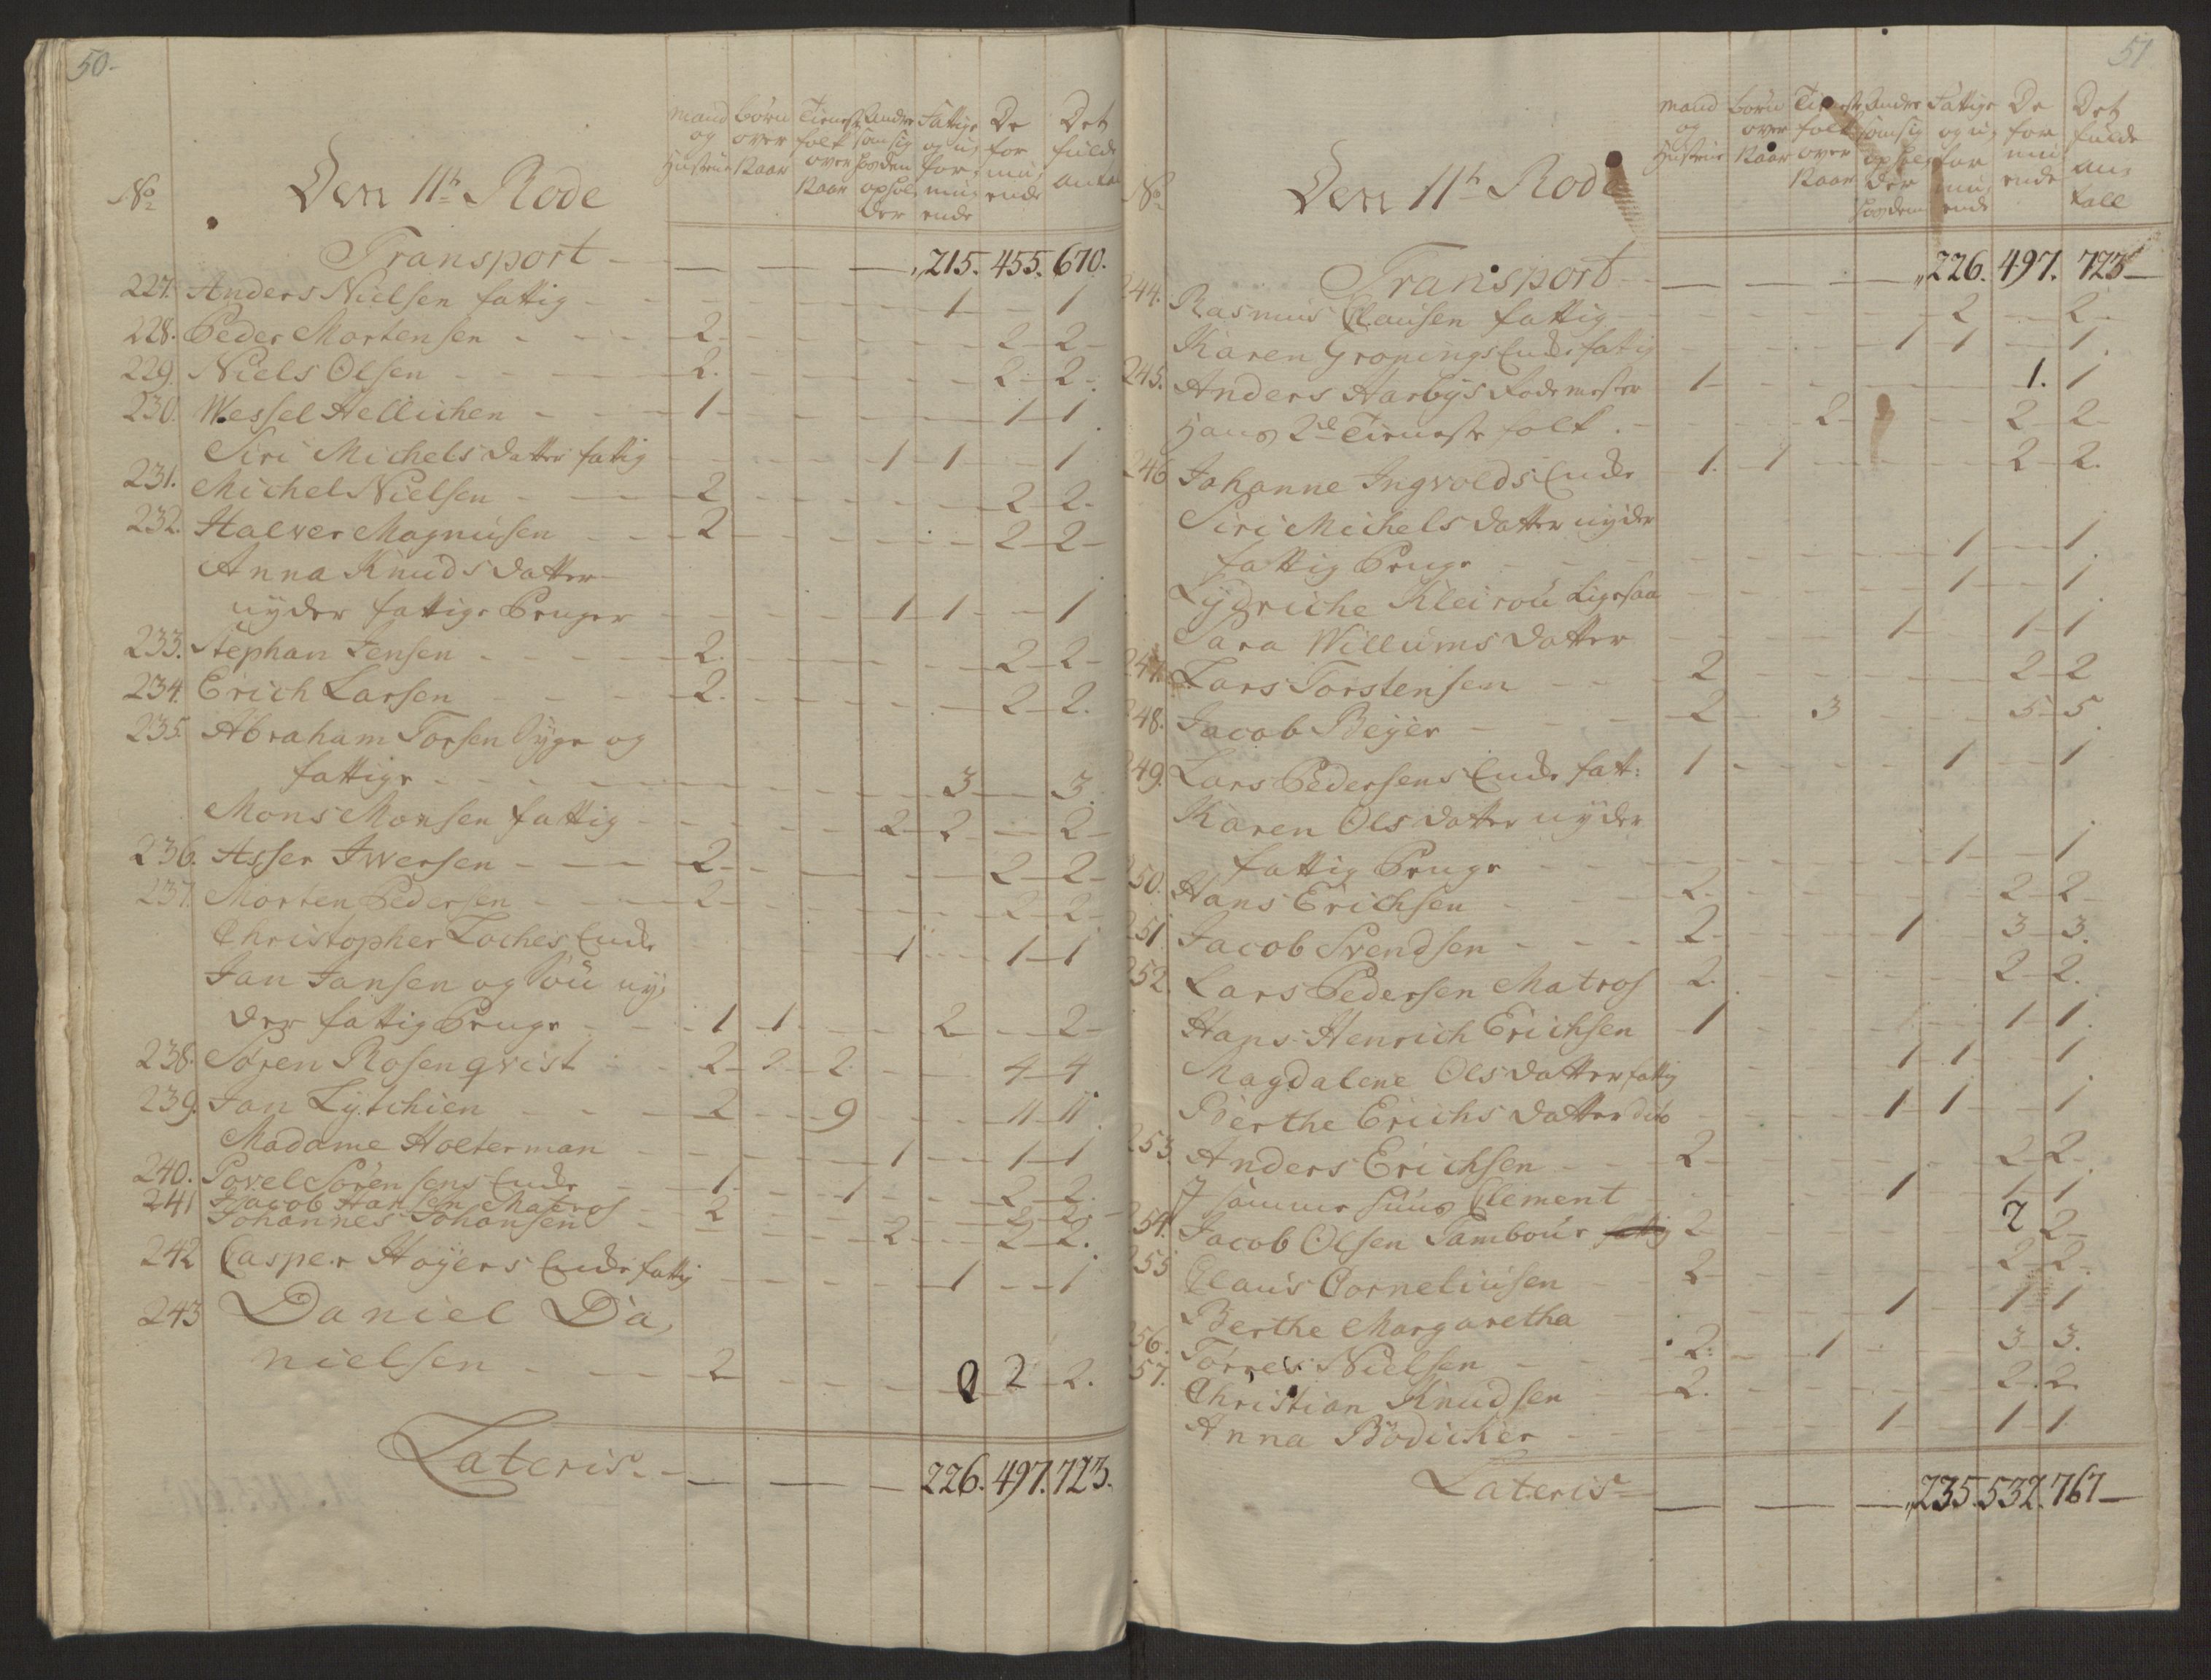 50-
No
Den 11te Rode
mand og Hustrue
børn over Aar
Tieneste folk over Aar
Andre som sig opholder
Fattige og uformuende
De formuende
Det fulde antal
Transport - - - - 215. 455. 670.
227. Anders Nielsen fattig - - - 1 - 1
228. Peder Mortensen - - - 2 - - - 2 - 2 -
229. Niels Olsen - - - 2. - - - 2 - 2 -
230. Wessel Hellichen - - - 1 - - - 1 - 1.
Siri Michels datter fatig - - - 1 - 1 - - 1
231. Michel Nielsen - - - 2 - - - 2 2.
232. Halver Magnusen - - - 2 - - - 2 - 2 -
Anna Knuds datter
nyder fattige Penger - - - 1 - 1 - - 1
233. Stephan Jensen - - - 2. - - - 2 - 2 -
234. Erich Larsen - - - 2. - - - 2 - 2.
235. Abraham Torsen Syge og
fattige - - - 3 - 3.
Mons Monsen fattig - - - 2 - 2 - - 2 -
236. Asser Iwersen - - - 2 - - - 2 - 2 -
237. Morten Pedersen - - - 2 - - - 2 - 2 -
Christopher Loches Enke 1 - - 1 - 1
Jan Jansen og Søn ny,
der fattig Penge - - 1 - 1 - - - 2 - - 2 -
238. Søren Rosenqvist - - 2 - 2 - 2 - - - 4 - 4
239. Jan Lytchien - - - 2 - - 9 - - - 11 - 11.
Madame Holterman - - - 1 - - 1 - 1
240. Povel Sørensens Enke - - 1. - - 1 - - - 2 - 2.
241 Jacob Hansen Matros - 2 - - - 2 - 2. -
Johannes Johansen - - - 2 - - 2 - 2.
242 Casper Hoyers Enke fattig - - - 1 - - 1
243 Daniel Da,
nielsen - - - 2 - - - 0 2 - 2.
Lateris - - - - 226. 497. 723.
51
No
Den 11te Rode
mand og Hustrue
børn over Aar
Tieneste folk over Aar
Andre som sig opholder
Fattige og uformuende
De formuende
Det fulde antall
Transport - - - - 226. 497. 723 -
244. Rasmus Clausen fattig - - - 2 - - 2 -
Karen Gronings Enke fatig - - - 1 - 1 - - 1.
245. Anders Aarbys Rodemester 1 - - - - 1. 1
Hans 2de Tieneste folk. - - - 2 - - - 2 - 2 -
246 Johanne Ingvolds Enke - 1. - 1 - - - 2 - 2.
Siri Michels datter nyder
fattig Penge - - - 1 - - 1.
Lydriche Kleirou Ligesaa - - - 1 - - 1.
Sara Willums datter - - - 1 - - 1 - 1
247. Lars Torstensen - - - 2 - - - 2 - 2
248. Jacob Beyer - - - 2 - - 3 - - - 5 - 5.
249. Lars Pedersens Enke fatt: 1 - - - 1 - - 1
Karen Ols datter nyder
fattig Penge - - - 1 - - 1
250. Hans Erichsen - - - 2 - - - 2 - 2 -
251. Jacob Svendsen - - - 2 - - - 1 - - 3 - 3.
252. Lars Pedersen Matros 2. - - - 2 - 2.
Hans Henrich Erichsen - 1 - - - 1 - 1.
Magdalene Ols datter fattig - - - 1 - 1 - - 1
Berthe Erichs datter dito - - - 1 - 1 - - 1
253. Anders Erichsen - - - 2 - - - 2 - 2 -
I samme Huus Clement - - - 1 - - 1 - 1
254. Jacob Olsen Tambour fattig 2 - - - 2 2 -
255 Claus Corneliusen - - 2 - - - 2 - 2.
Berthe Margaretha - - - 1 - - 1 - 1
256. Torres Nielsen - - - 2: - - 1 - - - 3 - 3.
257. Christian Knudsen - - - 2. - - - 2. 2.
Anna Bödicker - - - 1 - - 1 - 1
Lateris - - - - 235. 532. 767 -